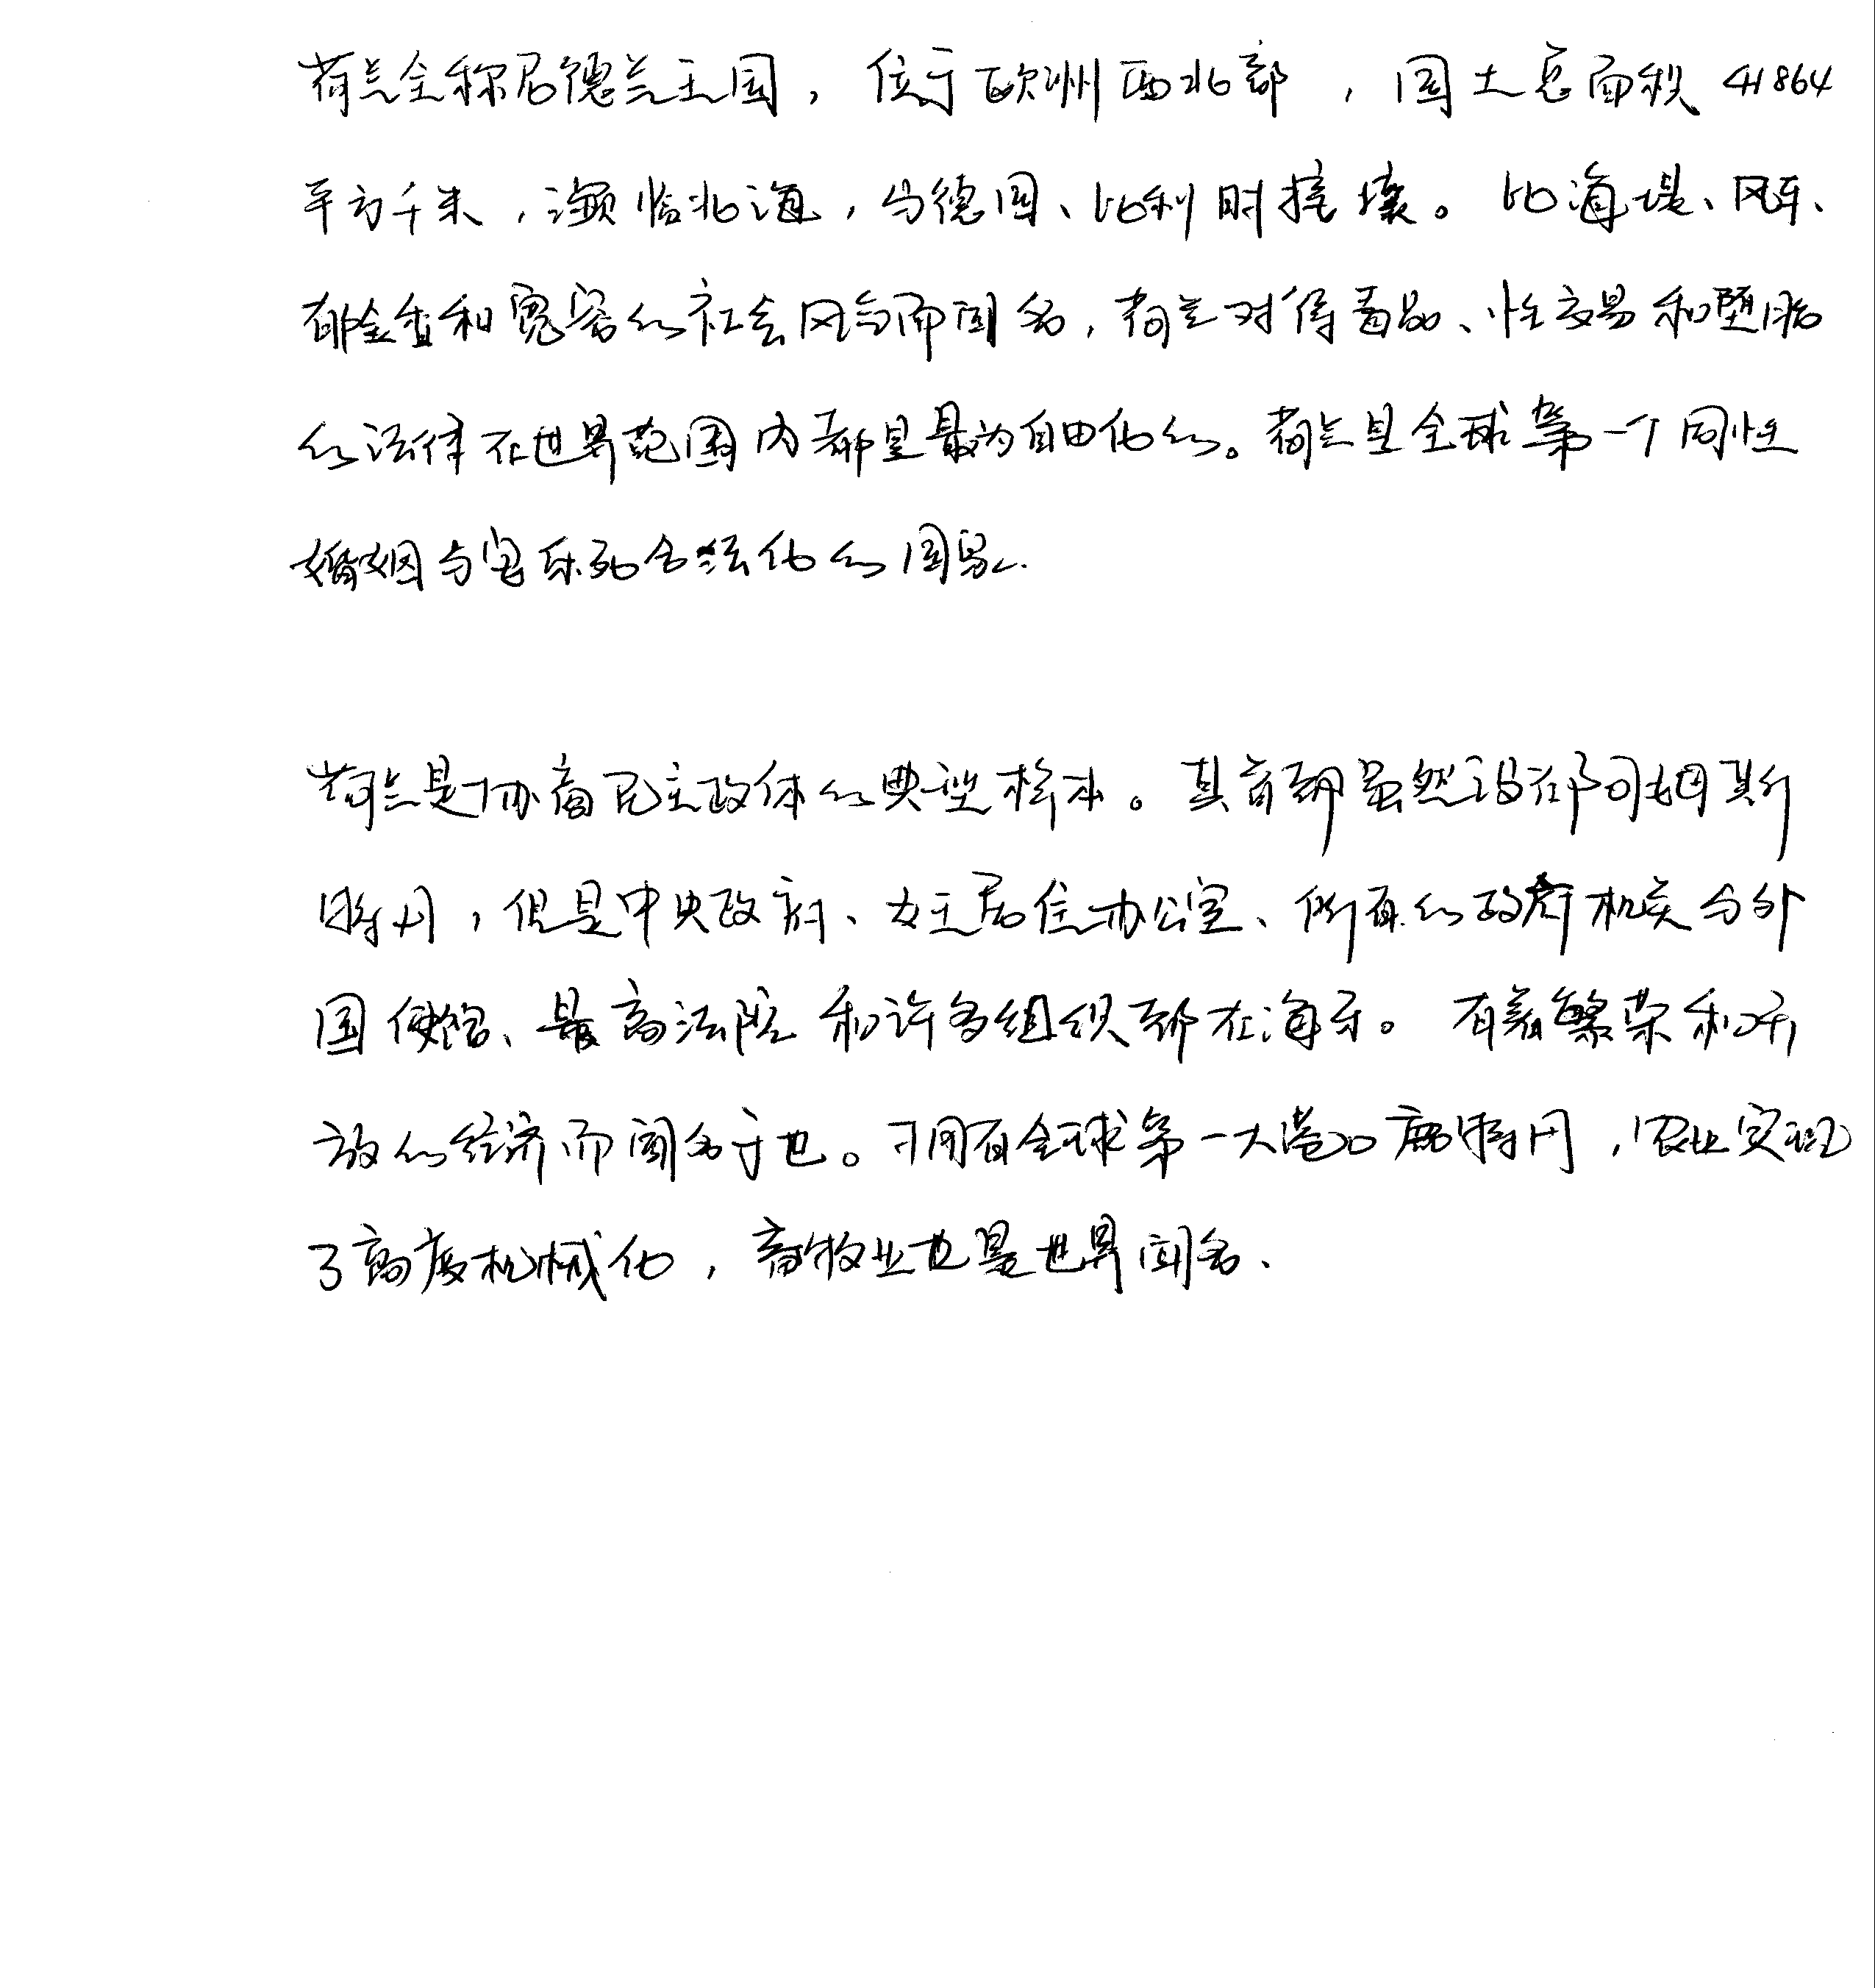 荷兰全称尼德兰王国，位于欧洲西北部，国土总面积41864
平方千米，濒临北海，与德国、比利时接壤。以海堤、风车、
郁金香和宽容的社会风气而闻名，荷兰对待毒品、性交易和堕胎
的法律在世界范围内都是最为自由化的。荷兰是全球第一个同性
婚姻与安乐死合法化的国家.
荷兰是协商民主政体的典型样本。其首都虽然设在阿姆斯
特丹，但是中央政府、女王居住办公室、所有的政府机关与外
国使馆、最高法院和许多组织都在海牙。有着繁荣和开
放的经济而闻名于世。拥有全球第一大港口鹿特丹，农业实现
了高度机械化，畜牧业也是世界闻名、